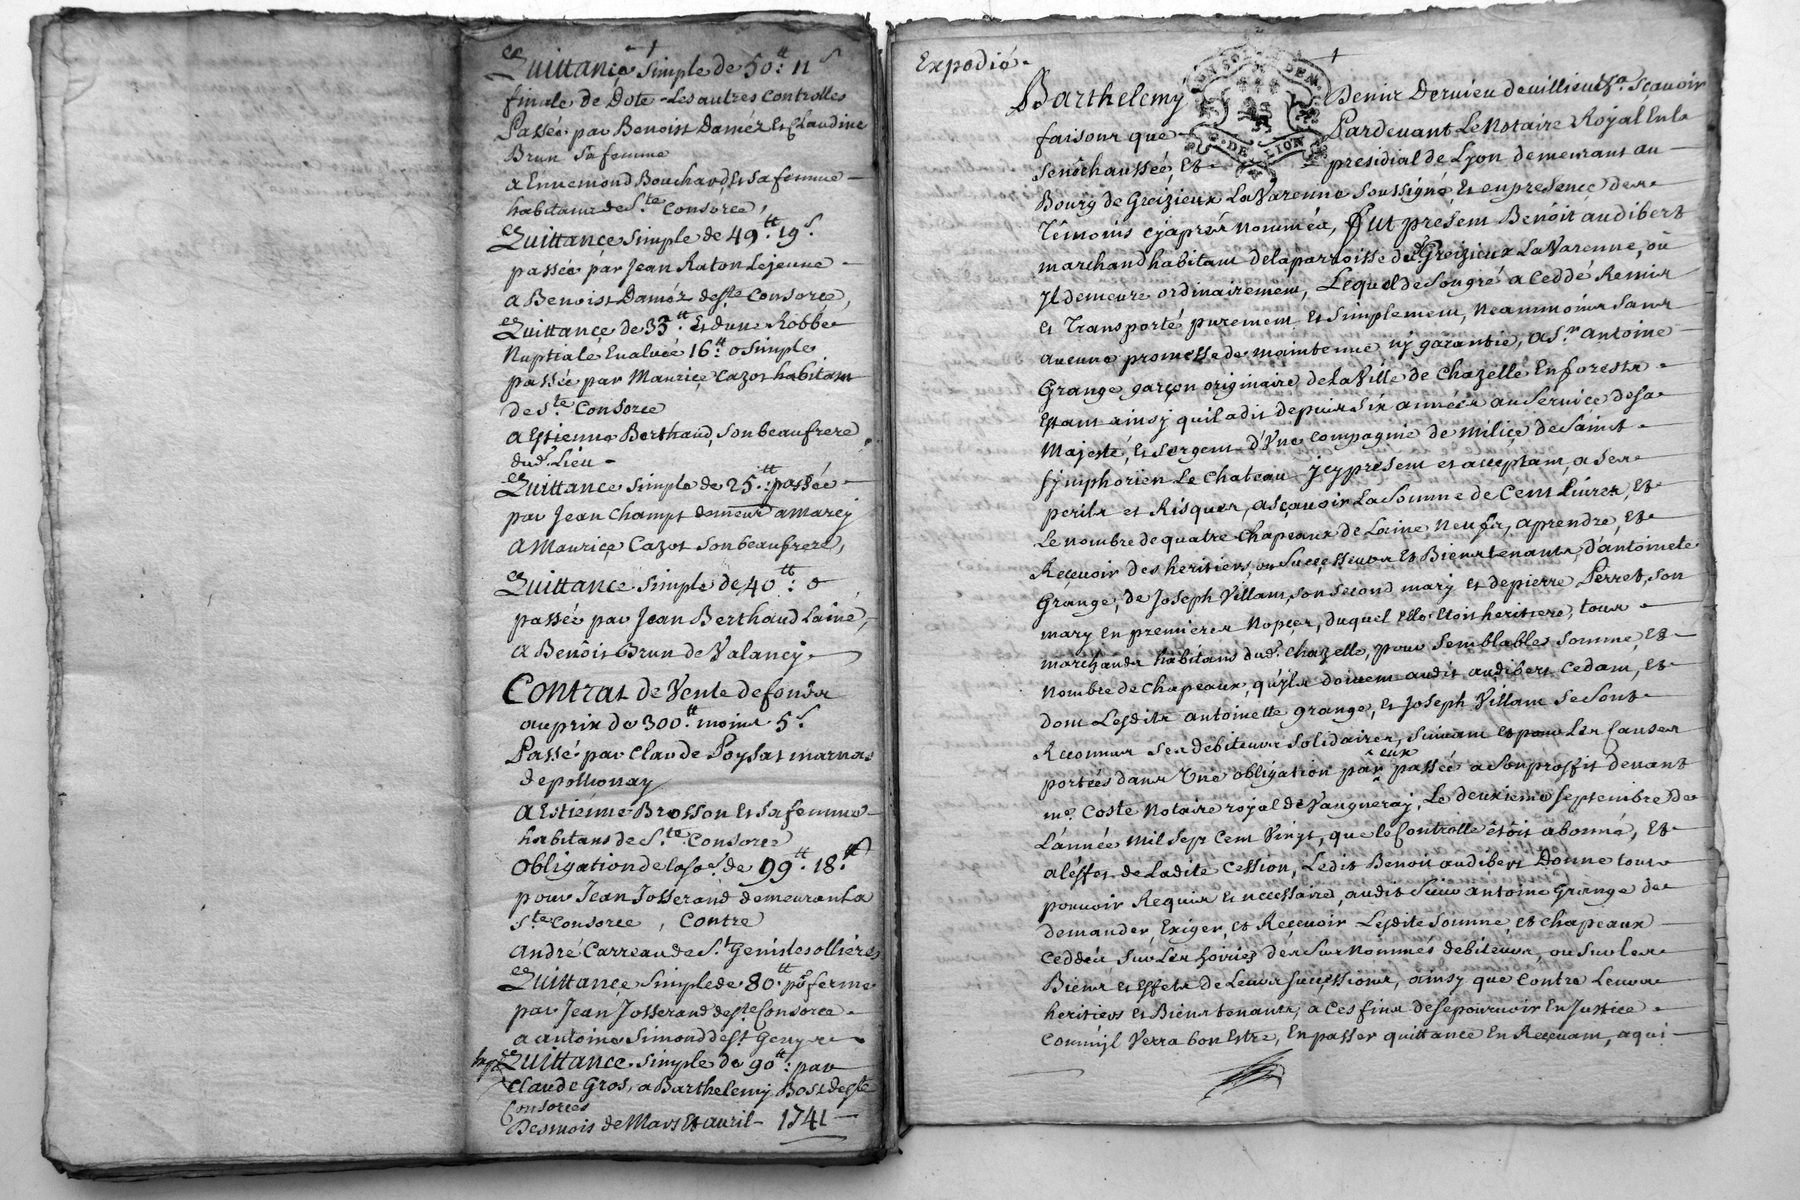 Quittance simple de 50.tt 11s
finale de Dote - Les autres Controlles
Passée par Benoist Daméz Et Claudine
Brun Sa femme
a Ennemond Bouchard, Et Sa femme
habitans de Ste. Consorce,
Quittance simple de 49.tt 19s.
passée par Jean Raton Lejeune
a Benoist Daméz de Ste Consorce,
Quittance de 33.tt Et dune Robbe
Nuptiale Evaluée 16.tt 0 simple
passée par Maurice Cazot habitam
de Ste. Consorce
a Estienne Berthaud, Son beaufrere
dud. Lieu
Quittance simple de 25.tt: passée
par Jean Champt demeur a Marcy
a Maurice Cazot Son beaufrere,
Quittance simple de 40.tt: 0
passée par Jean Berthaud Lainé,
a Benoist Brun de Valancy
Contrat de Vente de fonds
au prix de 300.tt moins 5s
Passé par Claude Poysat marnas
de pollionay
a Estienne Brosson Et Sa femme
habitans de Ste. Consorce
Obligation de la so.e de 99.tt 18.s
pour Jean Josserand demeurant a
Ste. Consorce, Contre
André Carreau de St. Genis les ollières
Quittance simple de 80.tt pr. ferme
par Jean Josserand de Ste Consorce
a antoine Simond de St Genys
Quittance simple de 90.tt: par
Claude Gros, a Barthelemy Bost de Ste
Consorce
Des mois de Mars Et avril - 1741
Expedié
Barthelemy Denis Dervieu de villieu Sçavoir
faisons que Pardevant Le Notaire Royal En la
Senéchaussée, Et presidial de Lyon demeurant au
Bourg de Greizieux La Varenne soussigné Et en presence des
Témoins cy après nommés, fut present Benoit audibert
marchand habitant de la parroisse dud. Greizieux La Varenne, où
Il demeure ordinairement, Lequel de Son gré a Ceddé Remis
et Transporté purement Et simplement, Neanmoins sans
aucune promesse de maintenue ny garantie, a Sr. antoine
Grange garçon originaire de La Ville de Chazelle En forests
Estant ainsy quil a dit depuis six années au Service de sa
Majesté, et sergent d'Une compagnie de milice de Saint
symphorien Le Chateau Icy present et acceptant, a ses
perils et Risques, a sçavoir La Somme de Cent Livres, Et
Le nombre de quatre Chapeaux de Laine Neufs, a prendre, Et
Reçevoir des heritiers, ou Successeurs Et Biens tenants, d'antoinete
Grange, de Joseph Villam, son second mary et de pierre Perret, son
mary En premieres Nopces, duquel Elle Etoit heritiere, tous
marchands habitans dud. Chazelle, pour Semblable somme, Et
Nombre de Chapeaux, qu'ils doivent audit audibert Cedant, Et
dont Lesdits antoinette grange, et Joseph Villam Se sont
Reconnus Ses debiteurs Solidaires, suivant Les Causes
portées dans Une obligation par eux passée a Son proffit devant
me. Coste Notaire royal de Vaugneray, Le deuxieme septembre de
L'année Mil Sept Cent Vingt, que le Controlle étoit abonné, Et
a L'éffet de Ladite Cession, Ledit Benoit audibert Donne tous
pouvoir Requis et necessaire, audit Sieur antoine Grange de
demander, Exiger, et Reçevoir Lesdite Somme, et chapeaux
Ceddés sur Les hoiries des sus Nommés debiteurs, ou sur les
Biens et Effets de Leurs successions, ainsy que Contre Leurs
heritiers et Biens tenants, a Ces fins de se pourvoir En Justice
Comm'jl Verra bon Estre, En passer quittance En Recevant, a qui